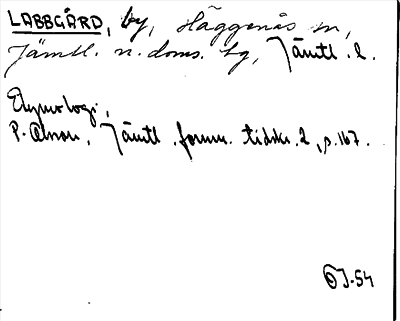 LABBGÅRD, by, Häggenås sn,
Jämtl. n. doms. hg, Jämtl. l.
Etymologi,
P. Olsson, Jämtl. fornm. tidskr. 2, s. 167.
OJ-54